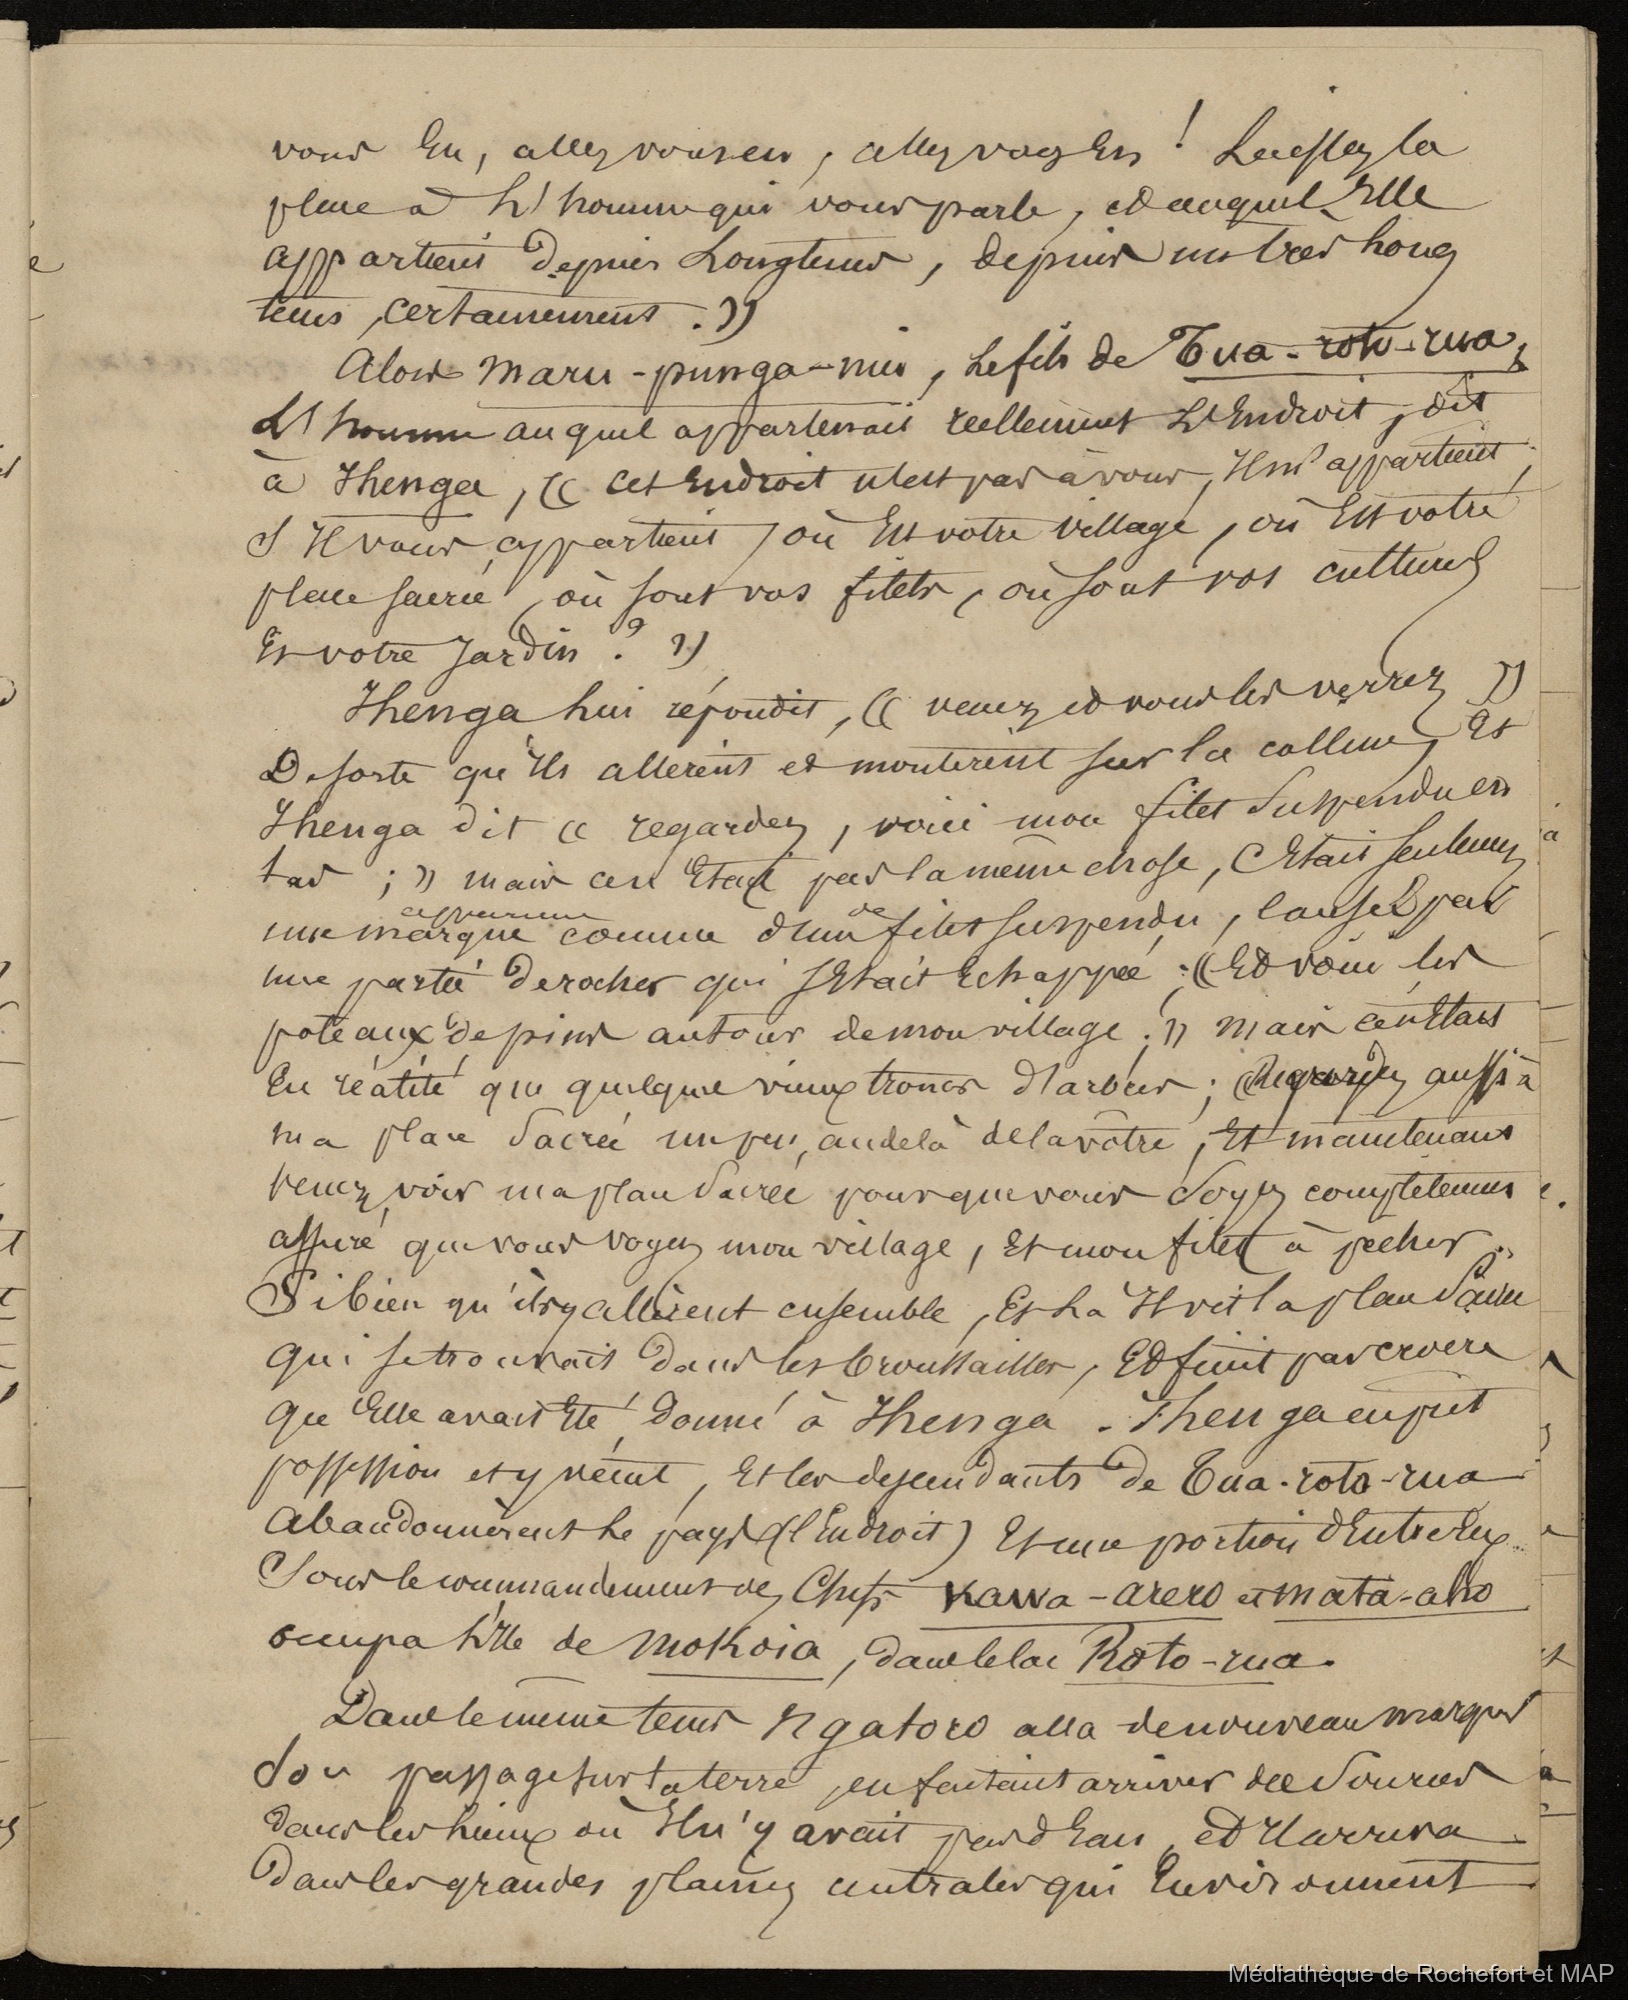 vous en, allez vous en, allez vous en ! Laissez la
place à l'homme qui vous parle, et auquel elle
appartient depuis longtems, depuis un tres long
tems, certainement. »
Alors Maru-punga-nui, le fils de Tua-roto-rua,
l'homme auquel appartenait reellement l'endroit, dit
à Ihenga, « cet endroit n'est pas à vous, il m'appartient,
s'il vous appartient, où est votre village, où est votre
place sacrée, où sont vos filets, où sont vos cultures
et votre jardin ? »
Ihenga lui répondit, « venez et vous les verrez »
De sorte qu'ils allerent et monterent sur la colline, et
Ihenga dit « regardez, voici mon filet suspendu en
bas ; » mais ce n'était pas la même chose, c'était seulement
apparence de
une marque comme d'un filet suspendu, causé par
une partie de rocher qui s'était echappée ; « et voici les
poteaux de pins autour de mon village. » mais ce n'était
en réalité que quelque vieux troncs d'arbres ; « Regardez aussi à
ma place sacrée un peu, au delà de la vôtre, et maintenant
venez voir ma place sacrée pour que vous soyez completement
assuré que vous voyez mon village, et mon filet à pêcher. »
Si bien qu'ils y allèrent ensemble, et là il vit la place sacrée
qui se trouvait dans les broussailles, et finit par croire
que elle avait été donné à Ihenga. Ihenga en prit
possession et y vécut, et les descendants de Tua-roto-rua
abandonnèrent le pays (l'endroit) et une portion d'entre eux
sous le commandement des Chefs Kawa-arero et Mata-aho
occupa l'île de Mokoia, dans le lac Roto-rua.
Dans le même tems Ngatoro alla de nouveau marquer
son passage sur la terre, en faisant arriver des sources
dans les lieux où il n'y avait pas d'eau, et il arriva
dans les grandes plaines centrales qui environnent
Médiathèque de Rochefort et MAP